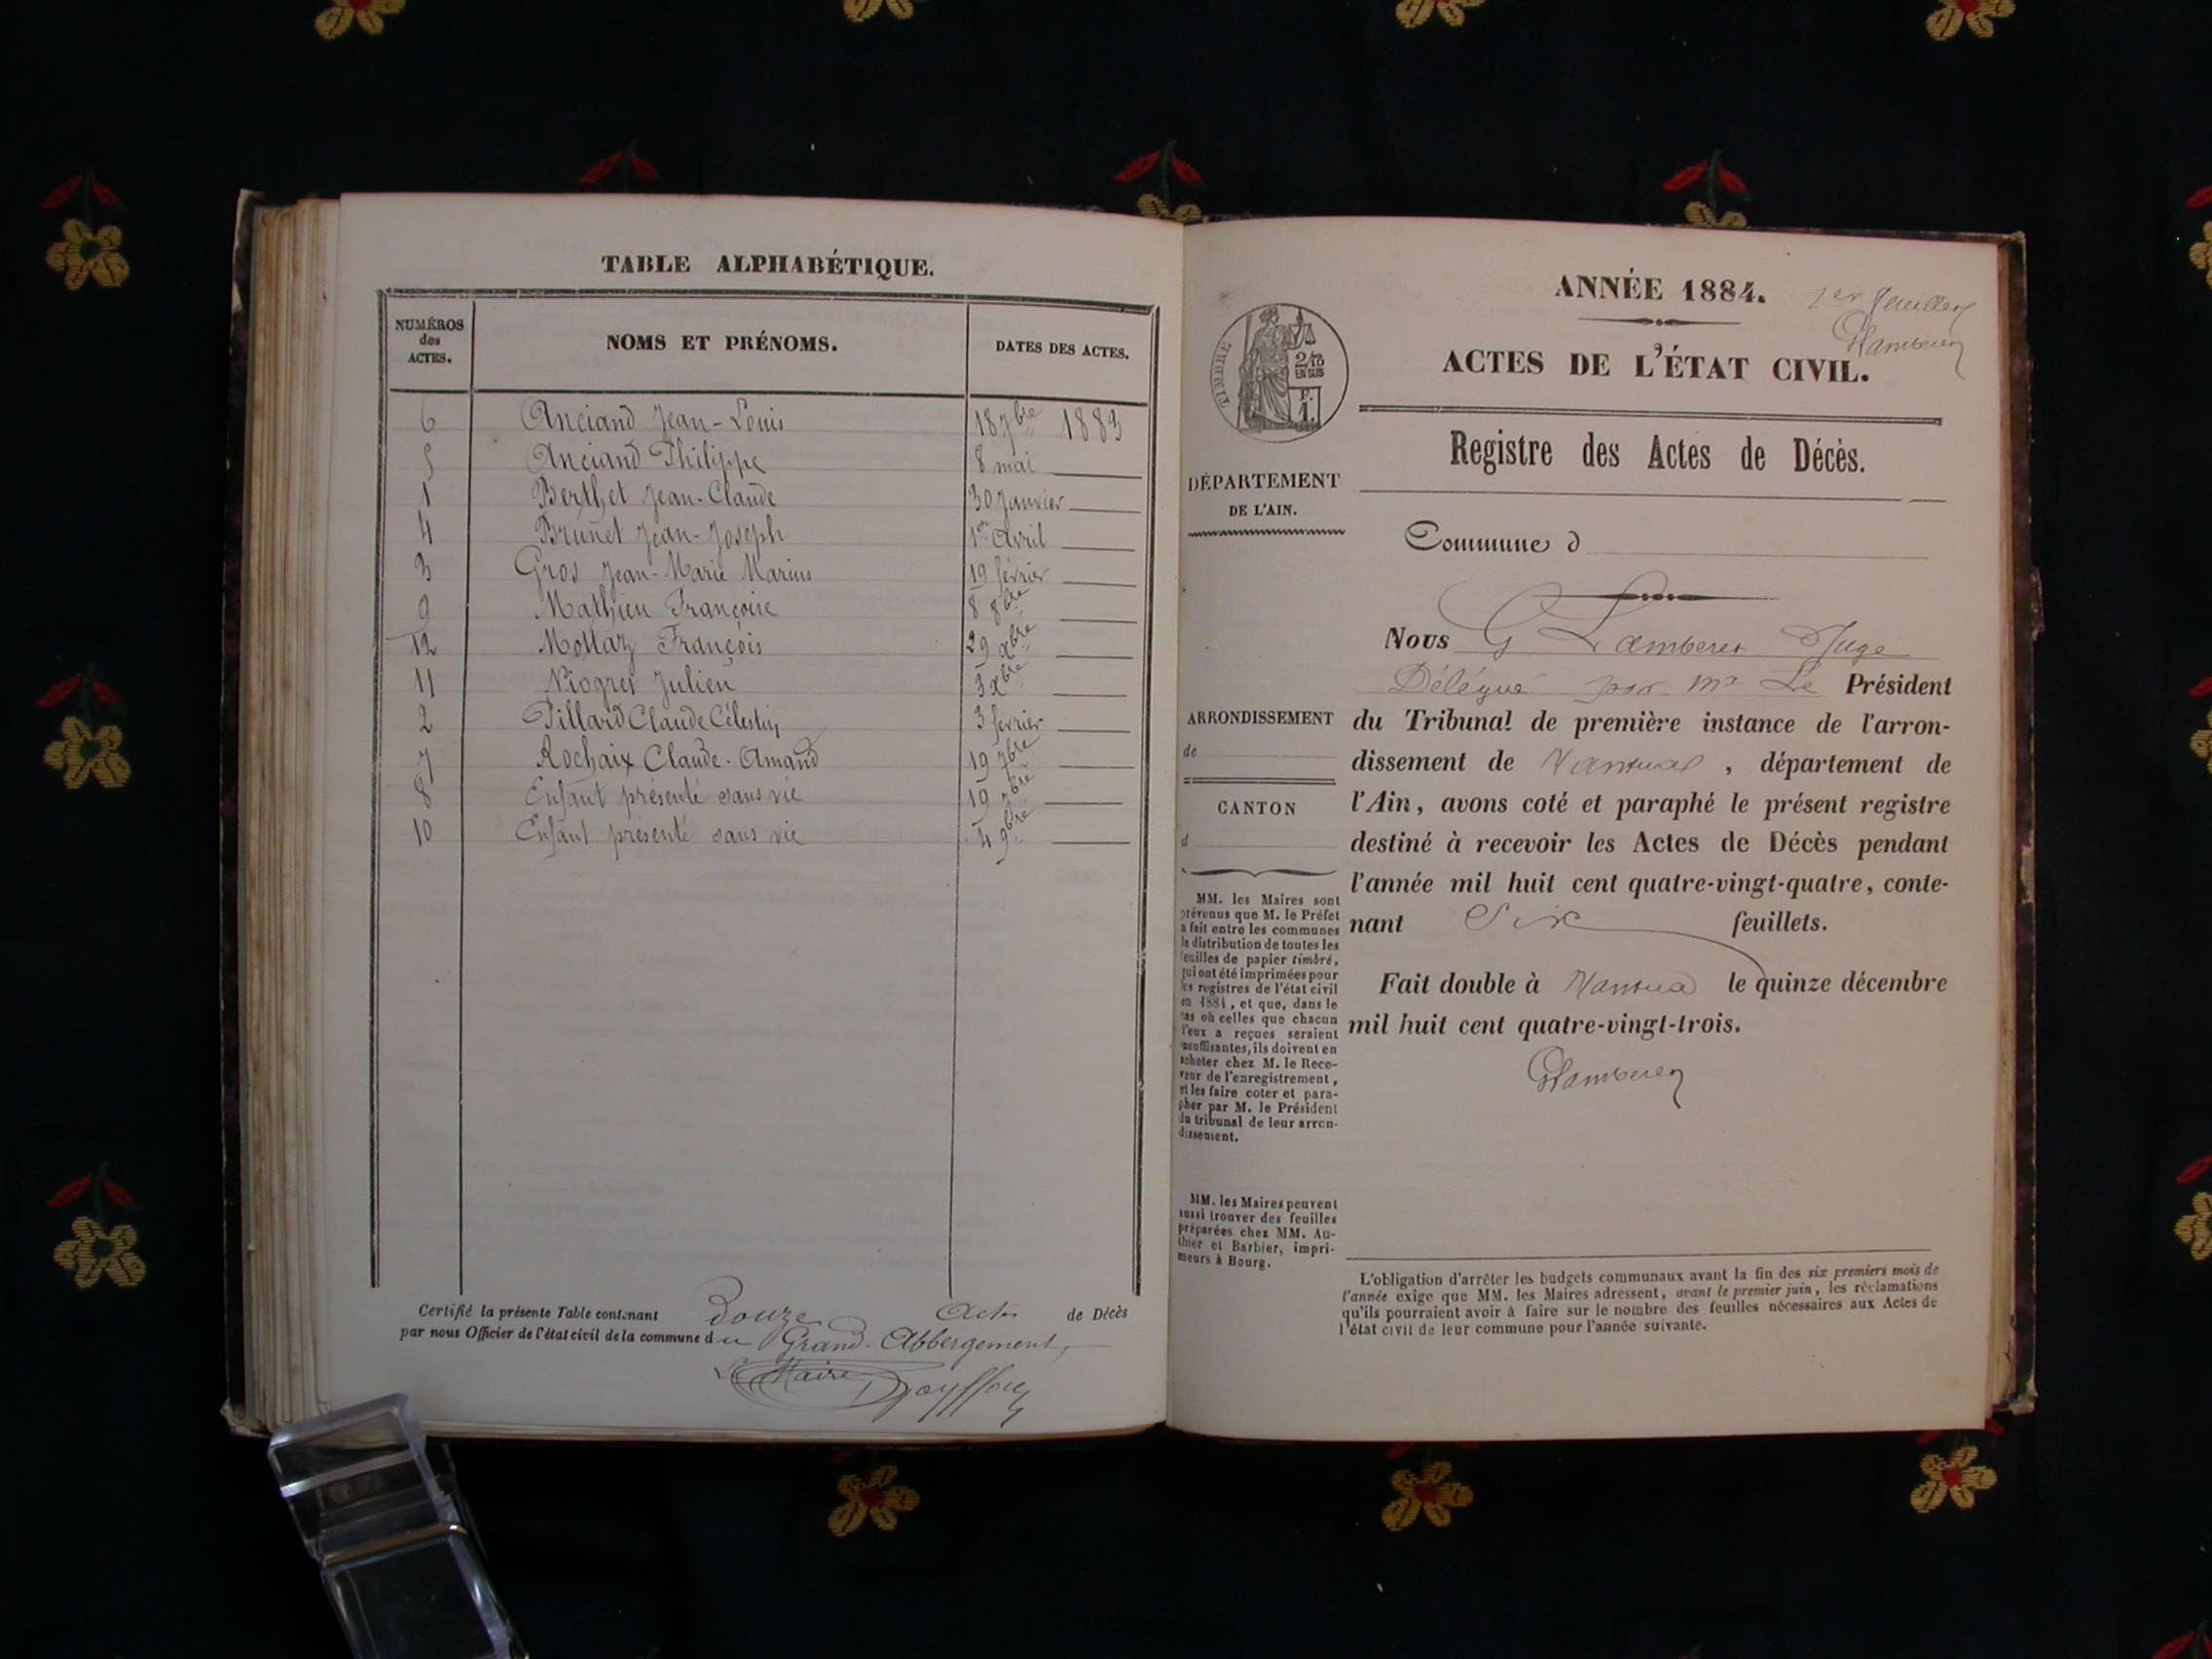 TABLE ALPHABÉTIQUE.
NUMÉROS des ACTES. NOMS ET PRÉNOMS. DATES DES ACTES.
6 Anciand Jean-Louis 18 7bre 1883
5 Anciand Philippe 8 mai
1 Berthet Jean-Claude 30 Janvier
4 Brunet Jean-Joseph 1er Avril
3 Gros Jean-Marie Marius 19 février
9 Mathieu Françoise 8 8bre
12 Mottaz François 29 xbre
11 Niogret Julien 3 xbre
2 Pillard Claude Célestin 3 février
7 Rochaix Claude-Amand 19 7bre
8 Enfant présenté sans vie 19 7bre
10 Enfant présenté sans vie 4 9bre
Certifié la présente Table contenant Douze Actes de Décès
par nous Officier de l'état civil de la commune du Grand-Abbergement,
Le Maire
ANNÉE 1884.
1er feuillet
ACTES DE L'ÉTAT CIVIL.
TIMBRE
2/10 EN SUS
F. 1.
Registre des Actes de Décès.
DÉPARTEMENT
DE L'AIN.
Commune d
Nous G Lamberet Juge
Délégué par Mr Le Président
du Tribunal de première instance de l'arron-
dissement de Nantua, département de
l'Ain, avons coté et paraphé le présent registre
destiné à recevoir les Actes de Décès pendant
l'année mil huit cent quatre-vingt-quatre, conte-
nant Six feuillets.
Fait double à Nantua le quinze décembre
mil huit cent quatre-vingt-trois.
GLamberet
ARRONDISSEMENT
de
CANTON
d
MM. les Maires sont
prévenus que M. le Préfet
a fait entre les communes
la distribution de toutes les
feuilles de papier timbré,
qui ont été imprimées pour
les registres de l'état civil
en 1884, et que, dans le
cas où celles que chacun
d'eux a reçues seraient
insuffisantes, ils doivent en
acheter chez M. le Rece-
veur de l'enregistrement,
et les faire coter et para-
pher par M. le Président
du tribunal de leur arron-
dissement.
MM. les Maires peuvent
aussi trouver des feuilles
préparées chez MM. Au-
thier et Barbier, impri-
meurs à Bourg.
L'obligation d'arrêter les budgets communaux avant la fin des six premiers mois de
l'année exige que MM. les Maires adressent, avant le premier juin, les réclamations
qu'ils pourraient avoir à faire sur le nombre des feuilles nécessaires aux Actes de
l'état civil de leur commune pour l'année suivante.